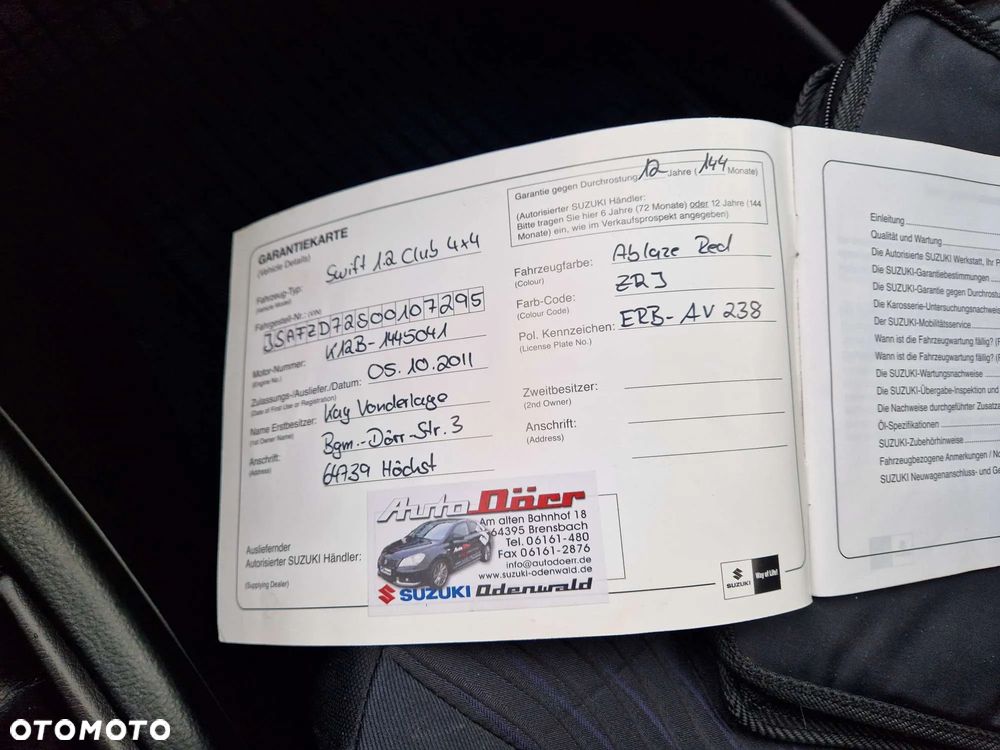 GARANTIEKARTE
(Vehicle Details)
Fahrzeug-Typ: Swift 1.2 Club 4x4
(Vehicle Model)
Fahrgestell-Nr.: (VIN)
JSAFZD72S00107295
Motor-Nummer: K12B-1445041
(Engine No.)
Zulassungs-/Ausliefer./Datum: 05.10.2011
(Date of First Use or Registration)
Name Erstbesitzer: Kay Vonderlage
(1st Owner Name)
Anschrift: Bgm.-Dörr-Str. 3
(Address)
64739 Höchst
Ausliefernder
Autorisierter SUZUKI Händler:
(Supplying Dealer)
Auto Dörr
Am alten Bahnhof 18
64395 Brensbach
Tel. 06161-480
Fax 06161-2876
info@autodoerr.de
www.suzuki-odenwald.de
SUZUKI Odenwald
Garantie gegen Durchrostung 12 Jahre (144 Monate)
(Autorisierter SUZUKI Händler:
Bitte tragen Sie hier 6 Jahre (72 Monate) oder 12 Jahre (144
Monate) ein, wie im Verkaufsprospekt angegeben)
Fahrzeugfarbe: Ablaze Red
(Colour)
Farb-Code: ZRJ
(Colour Code)
Pol. Kennzeichen: ERB-AV 238
(License Plate No.)
Zweitbesitzer:
(2nd Owner)
Anschrift:
(Address)
SUZUKI Way of Life!
Einleitung
Qualität und Wartung
Die Autorisierte SUZUKI Werkstatt, Ihr P
Die SUZUKI-Garantiebestimmungen
Die SUZUKI-Garantie gegen Durchrostu
Die Karosserie-Untersuchungsnachweise
Der SUZUKI-Mobilitätsservice
Wann ist die Fahrzeugwartung fällig? (F
Wann ist die Fahrzeugwartung fällig? (
Die SUZUKI-Wartungsnachweise
Die SUZUKI-Übergabe-Inspektion und
Die Nachweise durchgeführter Zusatza
Öl-Spezifikationen
SUZUKI-Zubehörhinweise
Fahrzeugbezogene Anmerkungen / No
SUZUKI Neuwagenanschluss- und Ge
OTOMOTO